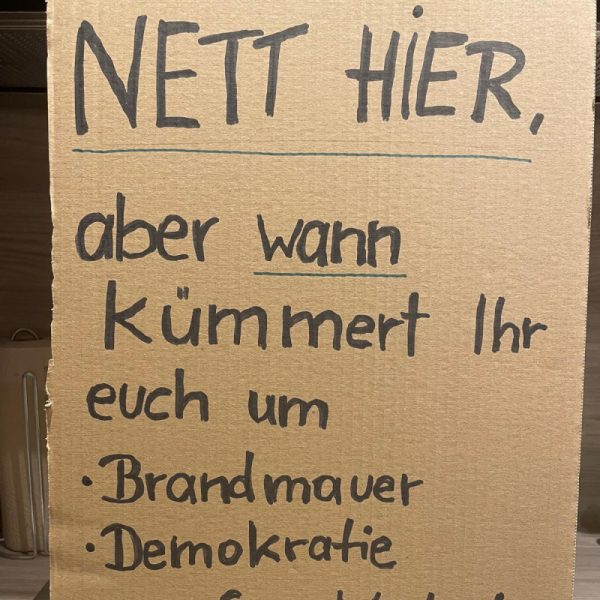 NETT HiER,
aber wann
kümmert Ihr
euch um
• Brandmauer
• Demokratie